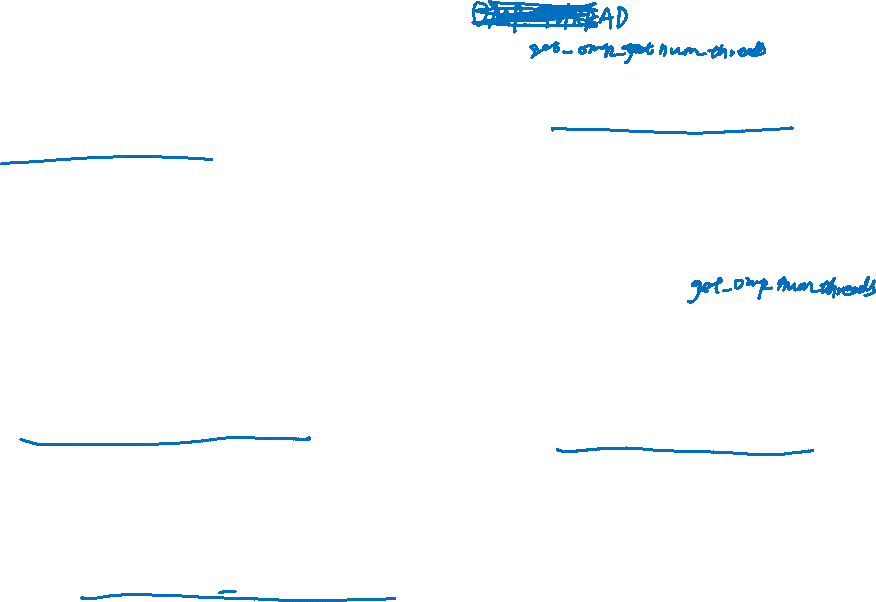 AD
get_omp_get num_threads
get_omp num_threads